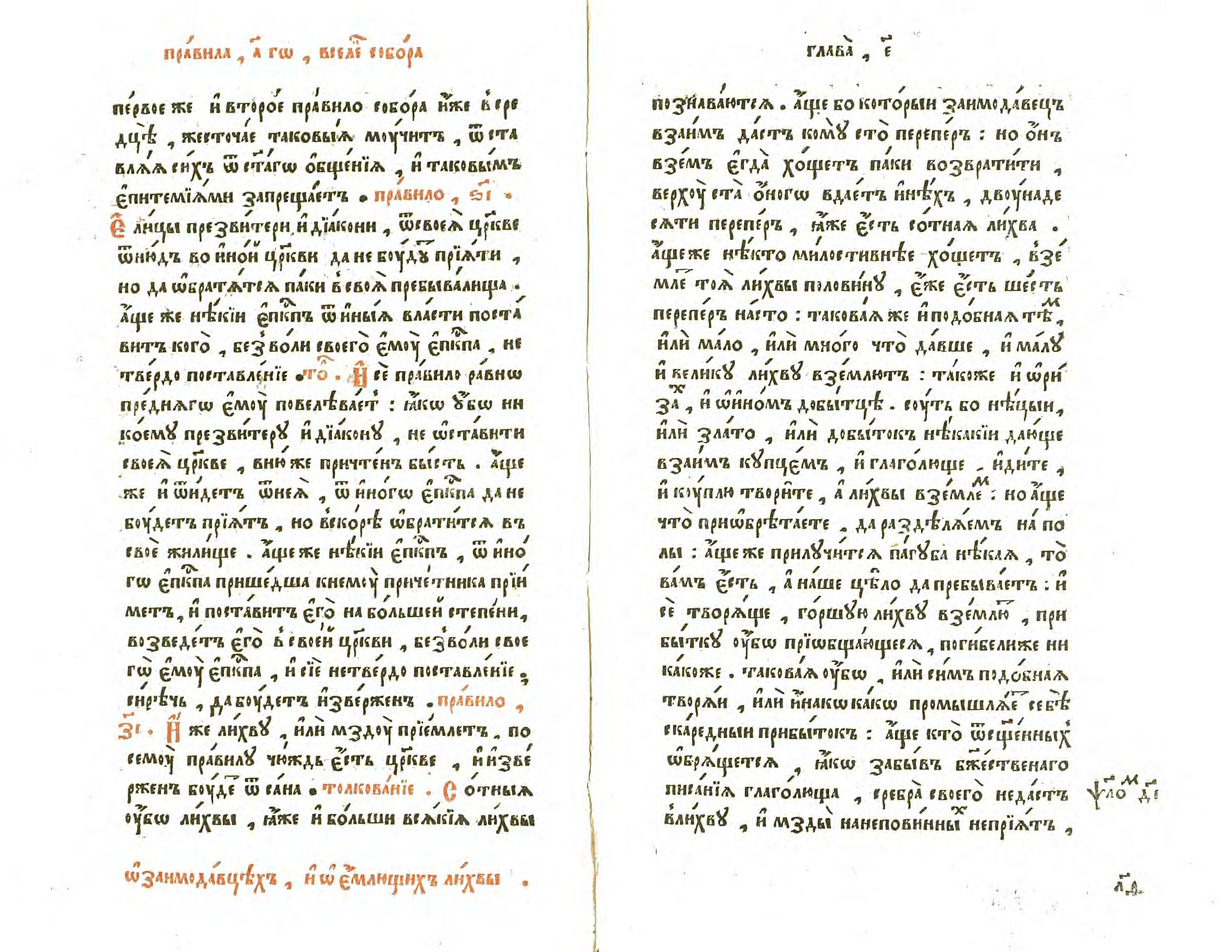 пра́вила , а҃ гѡ , вселе҃ собо́ра
пе́рвое же и҆ второ́е пра́вило собо́ра и҆́же в̾ сре
дцѣ̀ , жесточа́е таковы́ѧ моу́читъ , ѿста
влѧ́ѧ си́хъ ѿ ст҃а́гѡ ѻ҆бще́нїѧ , и҆ таковы́мъ
є҆питемїѧ́ми запреща́етъ . пра́вило , ѕ҃і .
Є҆ли́цы презви́тери и҆ дїа́кони , ѿ своеѧ̀ цр҃кве
ѿню́дъ во и҆но́й цр҃кви да не боу́дꙋ прїѧ́ти ,
но да ѡ҆братѧ́тсѧ па́ки в̾ своѧ̀ пребыва́лища .
а҆́ще же нѣ́кїи є҆пк҃пъ ѿ и҆ны́ѧ вла́сти поста́
витъ кого̀ , без̾ во́ли своего̀ є҆моу̀ є҆пк҃па , не
тве́рдо поставле́нїе . то̑ . И҆ сѐ пра́вило ра́внѡ
пре́днѧгѡ є҆моу̀ повелѣва́ет̾ : ꙗ҆́кѡ ᲂу҆́бѡ ни
кое́мꙋ презви́терꙋ и҆ дїа́конꙋ , не ѡ҆ста́вити
своеѧ̀ цр҃кве , в ню́ же причте́нъ бы́сть . а҆́ще
же и҆ ѿи́детъ ѿ неѧ̀ , ѿ и҆но́гѡ є҆пк҃па да не
боу́детъ прїѧ́тъ , но вско́рѣ ѡ҆брати́тсѧ въ
своѐ жили́ще . а҆́ще же нѣ́кїи є҆пк҃пъ , ѿ и҆но́
гѡ є҆пк҃па прише́дша к нему̀ приче́тника прїи́
метъ , и҆ поста́витъ є҆го̀ на бо́льшей степе́ни ,
возведе́тъ є҆го̀ в̾ свое́й цр҃кви , без̾ во́ли свое
гѡ̀ є҆моу̀ є҆пк҃па , и҆ сїѐ нетве́рдо поставле́нїе ,
си́рѣчь , да боу́детъ и҆зве́рженъ . пра́вило ,
з҃і . И҆́же ли́хвꙋ , и҆лѝ мздоу̀ прїе́млетъ , по
семоу̀ пра́вилꙋ чю́ждь є҆́сть цр҃кве , и҆ и҆зве́
рженъ боу́де ѿ са́на . толкова́нїе . Со́тныѧ
оу҆́бѡ ли́хвы , ꙗ҆́же и҆ бо́льши всѧ́кїѧ ли́хвы
ѡ҆ заимода́вцѣхъ , и҆ ѡ҆ є҆́млющихъ ли́хвы .
глава̀ , є҃
познава́ютсѧ . а҆́ще бо кото́рыи заимода́вецъ
взаи́мъ да́стъ комꙋ̀ сто̀ перепе́ръ : но ѻ҆́нъ
взе́мъ є҆гда̀ хо́щетъ па́ки возврати́ти ,
верхоу̀ ста̀ ѻ҆́ногѡ вдае́тъ и҆нѣ́хъ , двоуна́де
сѧти перепе́ръ , ꙗ҆́же є҆́сть со́тнаѧ ли́хва .
а҆́ще же нѣ́кто ми́лостивнѣе хо́щетъ , взе́
мле тоѧ̀ ли́хвы полови́нꙋ , є҆́же є҆́сть ше́сть
перепе́ръ на́ сто : такова́ѧ же и҆ подо́бнаѧ тѣⷨ ,
и҆лѝ ма́ло , и҆лѝ мно́го что̀ да́вше , и҆ ма́лꙋ
и҆ вели́кꙋ ли́хвꙋ взе́млютъ : та́коже и҆ ѡ҆ ри́
заⷯ , и҆ ѡ҆ и҆но́мъ добы́тцѣ . соу́ть бо нѣ́цыи ,
и҆лѝ зла́то , и҆лѝ добы́токъ нѣ́какїи даю́ще
взаи́мъ купце́мъ , и҆ глаго́люще , и҆ди́те ,
и҆ коу́плю твори́те , а҆ ли́хвы взе́млеⷨ : но а҆́ще
что̀ приѡбрѣ́таете , да раздѣлѧ́емъ на́ по
лы : а҆́ще же прилучи́тсѧ па́губа нѣ́каѧ , то̀
ва́мъ є҆́сть , а҆ на́ше цѣ́ло да пребыва́етъ : и҆
сѐ творѧ́ще , го́ршую ли́хвꙋ взе́млю , при
бы́ткꙋ оу҆́бѡ прїѡбща́ющесѧ , поги́бели же ни
ка́коже . такова́ѧ оу҆́бѡ , и҆лѝ си́мъ подо́бнаѧ
творѧ́и , и҆лѝ и҆на́кѡ ка́кѡ промышлѧ́е себѣ̀
скаре́дныи прибы́токъ : а҆́ще кто̀ ѿ сщ҃е́нныхъ
ѡ҆брѧ́щетсѧ , ꙗ҆́кѡ забы́въ бж҃е́ственаго
писа́нїѧ глаго́люща , сребра̀ своего̀ неда́стъ
в̾ ли́хвꙋ , и҆ мзды̀ на непови́нныⷯ непрїѧ́тъ ,
ѱало́ⷨ д҃і
л҃д